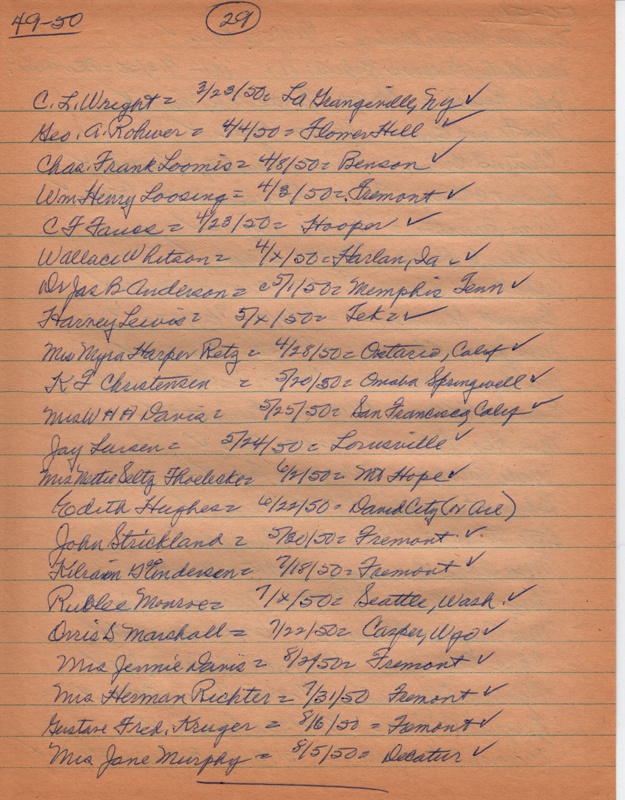 49-50 29
C. L. Wright = 3/23/50 = La Grangeville, Ny ✓
Geo. A. Rohwer = 4/4/50 = Flower Hill ✓
Chas. Frank Loomis = 4/8/50 = Benson ✓
Wm Henry Loosing = 4/3/50 = Fremont ✓
C F Fauss = 4/23/50 = Hooper ✓
Wallace Whitson = 4/x/50 = Harlan, Ia ✓
Dr Jas B Anderson = 5/1/50 = Memphis Tenn ✓
Harney Lewis = 5/x/50 = Tek = ✓
Mrs Myra Harper Retz = 4/28/50 = Ontario, Calif ✓
K F Christensen = 5/20/50 = Omaha Springwell ✓
Mrs W H H Davis = 5/25/50 = San Francisco, Calif ✓
Jay Larsen = 5/24/50 = Louisville ✓
Mrs Nettie Seltz Thoelecke = 6/2/50 = Mt Hope ✓
Edith Hughes = 6/22/50 = David City (or Ard)
John Strickland = 5/30/50 = Fremont ✓
Andersen = 7/18/50 = Fremont ✓
Rublee Monroe = 7/x/50 = Seattle, Wash. ✓
Orris S Marshall = 7/22/50 = Casper, Wyo ✓
Mrs Jennie Davis = 8/2/50 = Fremont ✓
Mrs Herman Richter = 7/31/50 Fremont ✓
Gustave Fred. Kruger = 8/6/50 = Fremont ✓
Mrs Jane Murphy = 8/5/50 = Decatur ✓